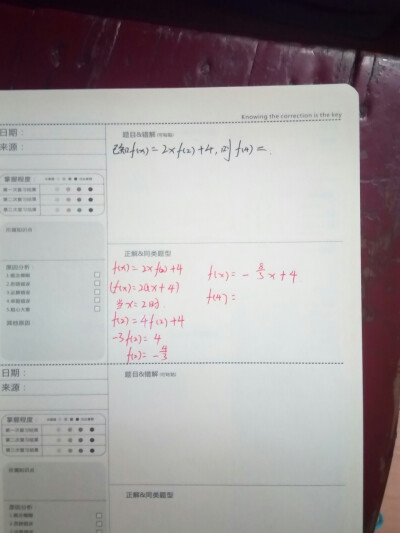 Knowing the correction is the key
日期：
来源：
题目&错解
已知f(x)=2xf(2)+4,则f(4)=
掌握程度
第一次复习结果
第二次复习结果
第三次复习结果
所属知识点
正解&同类题型
f(x)=2xf(2)+4
f(x)=2(2x+4)
当x=2时
f(2)=4f(2)+4
-3f(2)=4
f(2)=-4/3
f(x)=-8/3x+4
f(4)=
原因分析
1.概念模糊
2.思路错误
3.运算错误
4.审题错误
5.粗心大意
其他原因
日期：
来源：
题目&错解
掌握程度
第一次复习结果
第二次复习结果
第三次复习结果
所属知识点
正解&同类题型
原因分析
1.概念模糊
2.思路错误
3.运算错误